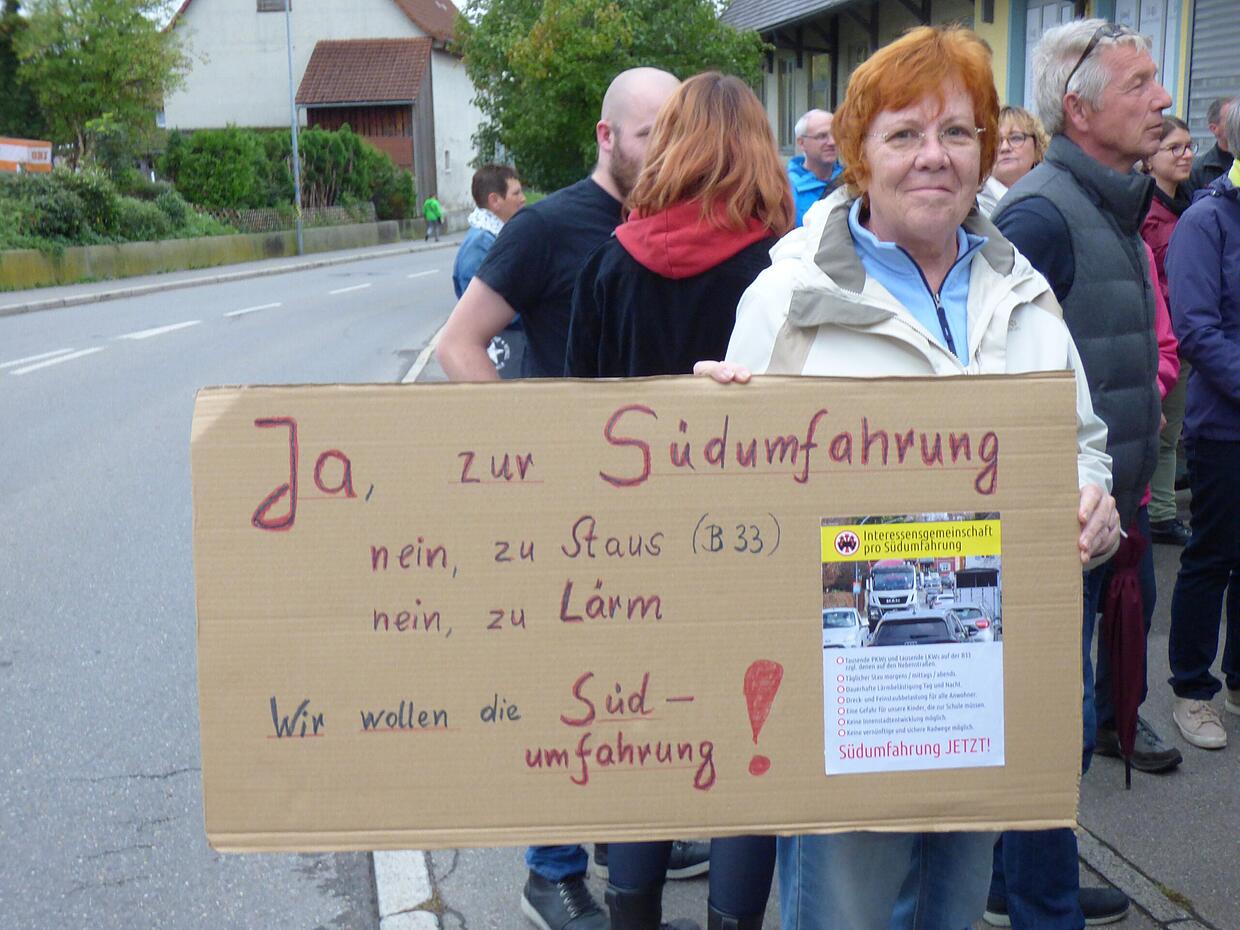 Ja, zur Südumfahrung
nein, zu Staus (B 33)
nein, zu Lärm
Wir wollen die Süd-
umfahrung!
Interessensgemeinschaft
pro Südumfahrung
Tausende PKWs und tausende LKWs auf der B33
zzgl. denen auf den Nebenstraßen.
Täglicher Stau morgens / mittags / abends.
Dauerhafte Lärmbelästigung Tag und Nacht.
Dreck- und Feinstaubbelastung für alle Anwohner.
Eine Gefahr für unsere Kinder, die zur Schule müssen.
Keine Innenstadtentwicklung möglich.
Keine vernünftige und sichere Radwege möglich.
Südumfahrung JETZT!